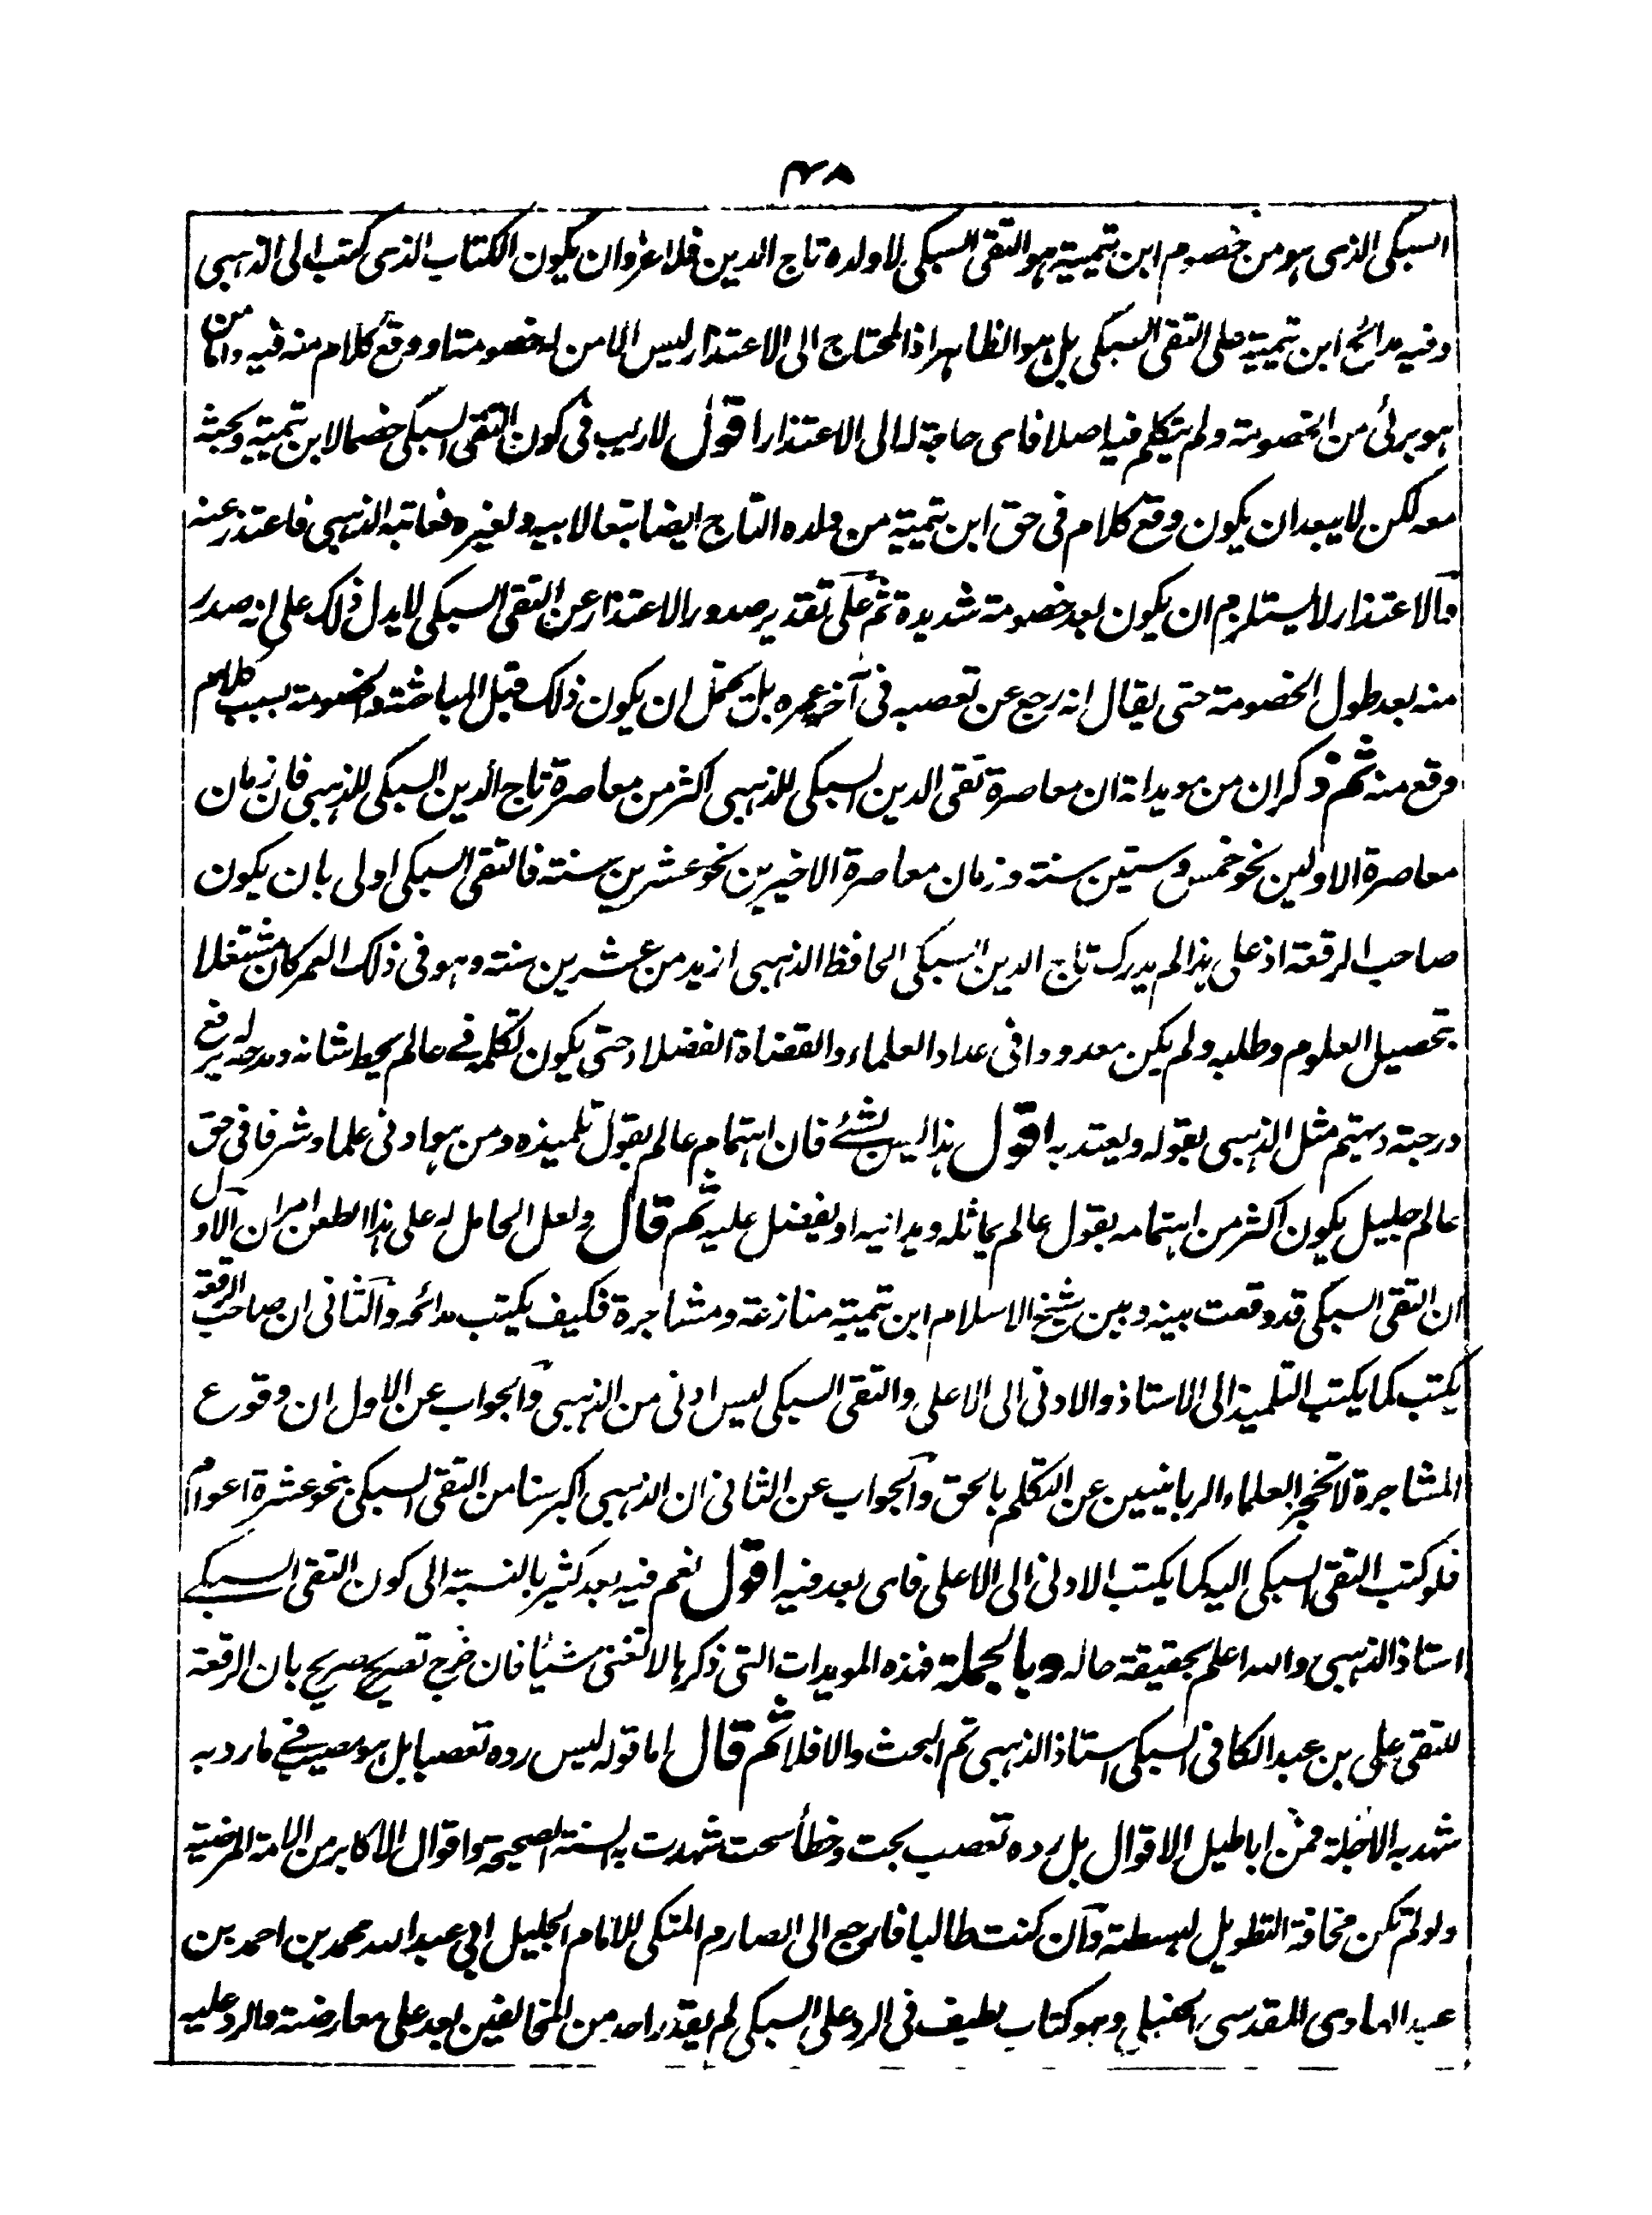 ٤٨
السبكى الذى هو من خصوم ابن تيمية هو التقى السبكى لا ولده تاج الدين فلا غرو ان يكون الكتاب الذى كتب الى الذهبى
وفيه مدائح ابن تيمية على التقى السبكى بل هو الظاهر اذ المحتاج الى الاعتذار ليس الا من له خصومة او وقع كلام منه فيه واما من
هو برئى من الخصومة ولم يتكلم فيه اصلا فاى حاجة له الى الاعتذار اقول لا ريب فى كون التقى السبكى خصما لابن تيمية وبحثه
معه لكن لا يبعد ان يكون وقع كلام فى حق ابن تيمية من ولده التاج ايضا تبعا لابيه ولغيره فعاتبه الذهبى فاعتذر عنه
فالاعتذار لا يستلزم ان يكون بعد خصومة شديدة ثم على تقدير صدور الاعتذار عن التقى السبكى لا يدل ذلك على انه صدر
منه بعد طول الخصومة حتى يقال انه رجع عن تعصبه فى آخر عمره بل يحتمل ان يكون ذلك قبل المباحثة والخصومة بسبب كلام
وقع منه ثم ذكر ان من مويداته ان معاصرة تقى الدين السبكى للذهبى اكثر من معاصرة تاج الدين السبكى للذهبى فان زمان
معاصرة الاولين نحو خمس وستين سنة وزمان معاصرة الاخيرين نحو عشرين سنة فالتقى السبكى اولى بان يكون
صاحب الرقعة اذ على هذا لم يدرك تاج الدين السبكى الحافظ الذهبى ازيد من عشرين سنة وهو فى ذلك العمر كان مشتغلا
بتحصيل العلوم وطلبه ولم يكن معدودا فى عداد العلماء والقضاة الفضلاء حتى يكون تكلمه فى عالم يحط شانه ومدحه له يرفع
درجته ويهتم مثل الذهبى بقوله ويعتد به اقول هذا ليس بشئ فان اهتمام عالم بقول تلميذه ومن هو ادنى علما وشرفا فى حق
عالم جليل يكون اكثر من اهتمامه بقول عالم يماثله ويدانيه او يفضل عليه ثم قال ولعل الحامل له على هذا الطعن امران الاول
ان التقى السبكى قد وقعت بينه وبين شيخ الاسلام ابن تيمية منازعة ومشاجرة فكيف يكتب مدائحه والثانى ان صاحب الرقعة
يكتب كما يكتب التلميذ الى الاستاذ والادنى الى الاعلى والتقى السبكى ليس ادنى من الذهبى والجواب عن الاول ان وقوع
المشاجرة لا تحجز العلماء الربانيين عن التكلم بالحق والجواب عن الثانى ان الذهبى اكبر سنا من التقى السبكى بنحو عشرة اعوام
فلو كتب التقى السبكى اليه كما يكتب الادنى الى الاعلى فاى بعد فيه اقول نعم فيه بعد كثير بالنسبة الى كون التقى السبكى
استاذ الذهبى والله اعلم بحقيقة حاله وبالجملة فهذه المويدات التى ذكرها لا تغنى شيئا فان خرج تصريح صريح بان الرقعة
للتقى على بن عبد الكافى السبكى استاذ الذهبى تم البحث والا فلا ثم قال اما قوله ليس رده تعصبا بل هو مصيب فى ما رد به
شهد به الاجلة فمن اباطيل الاقوال بل رده تعصب بحت وخطأ سحت شهدت به السنة الصحيحة واقوال الاكابر من الامة المرضية
ولو لم تكن مخافة التطويل لبسطته وان كنت طالبا فارجع الى الصارم المنكى للامام الجليل ابى عبد الله محمد بن احمد بن
عبد الهادى المقدسى الحنبلى وهو كتاب لطيف فى الرد على السبكى لم يقدر احد من المخالفين بعد على معارضته والرد عليه